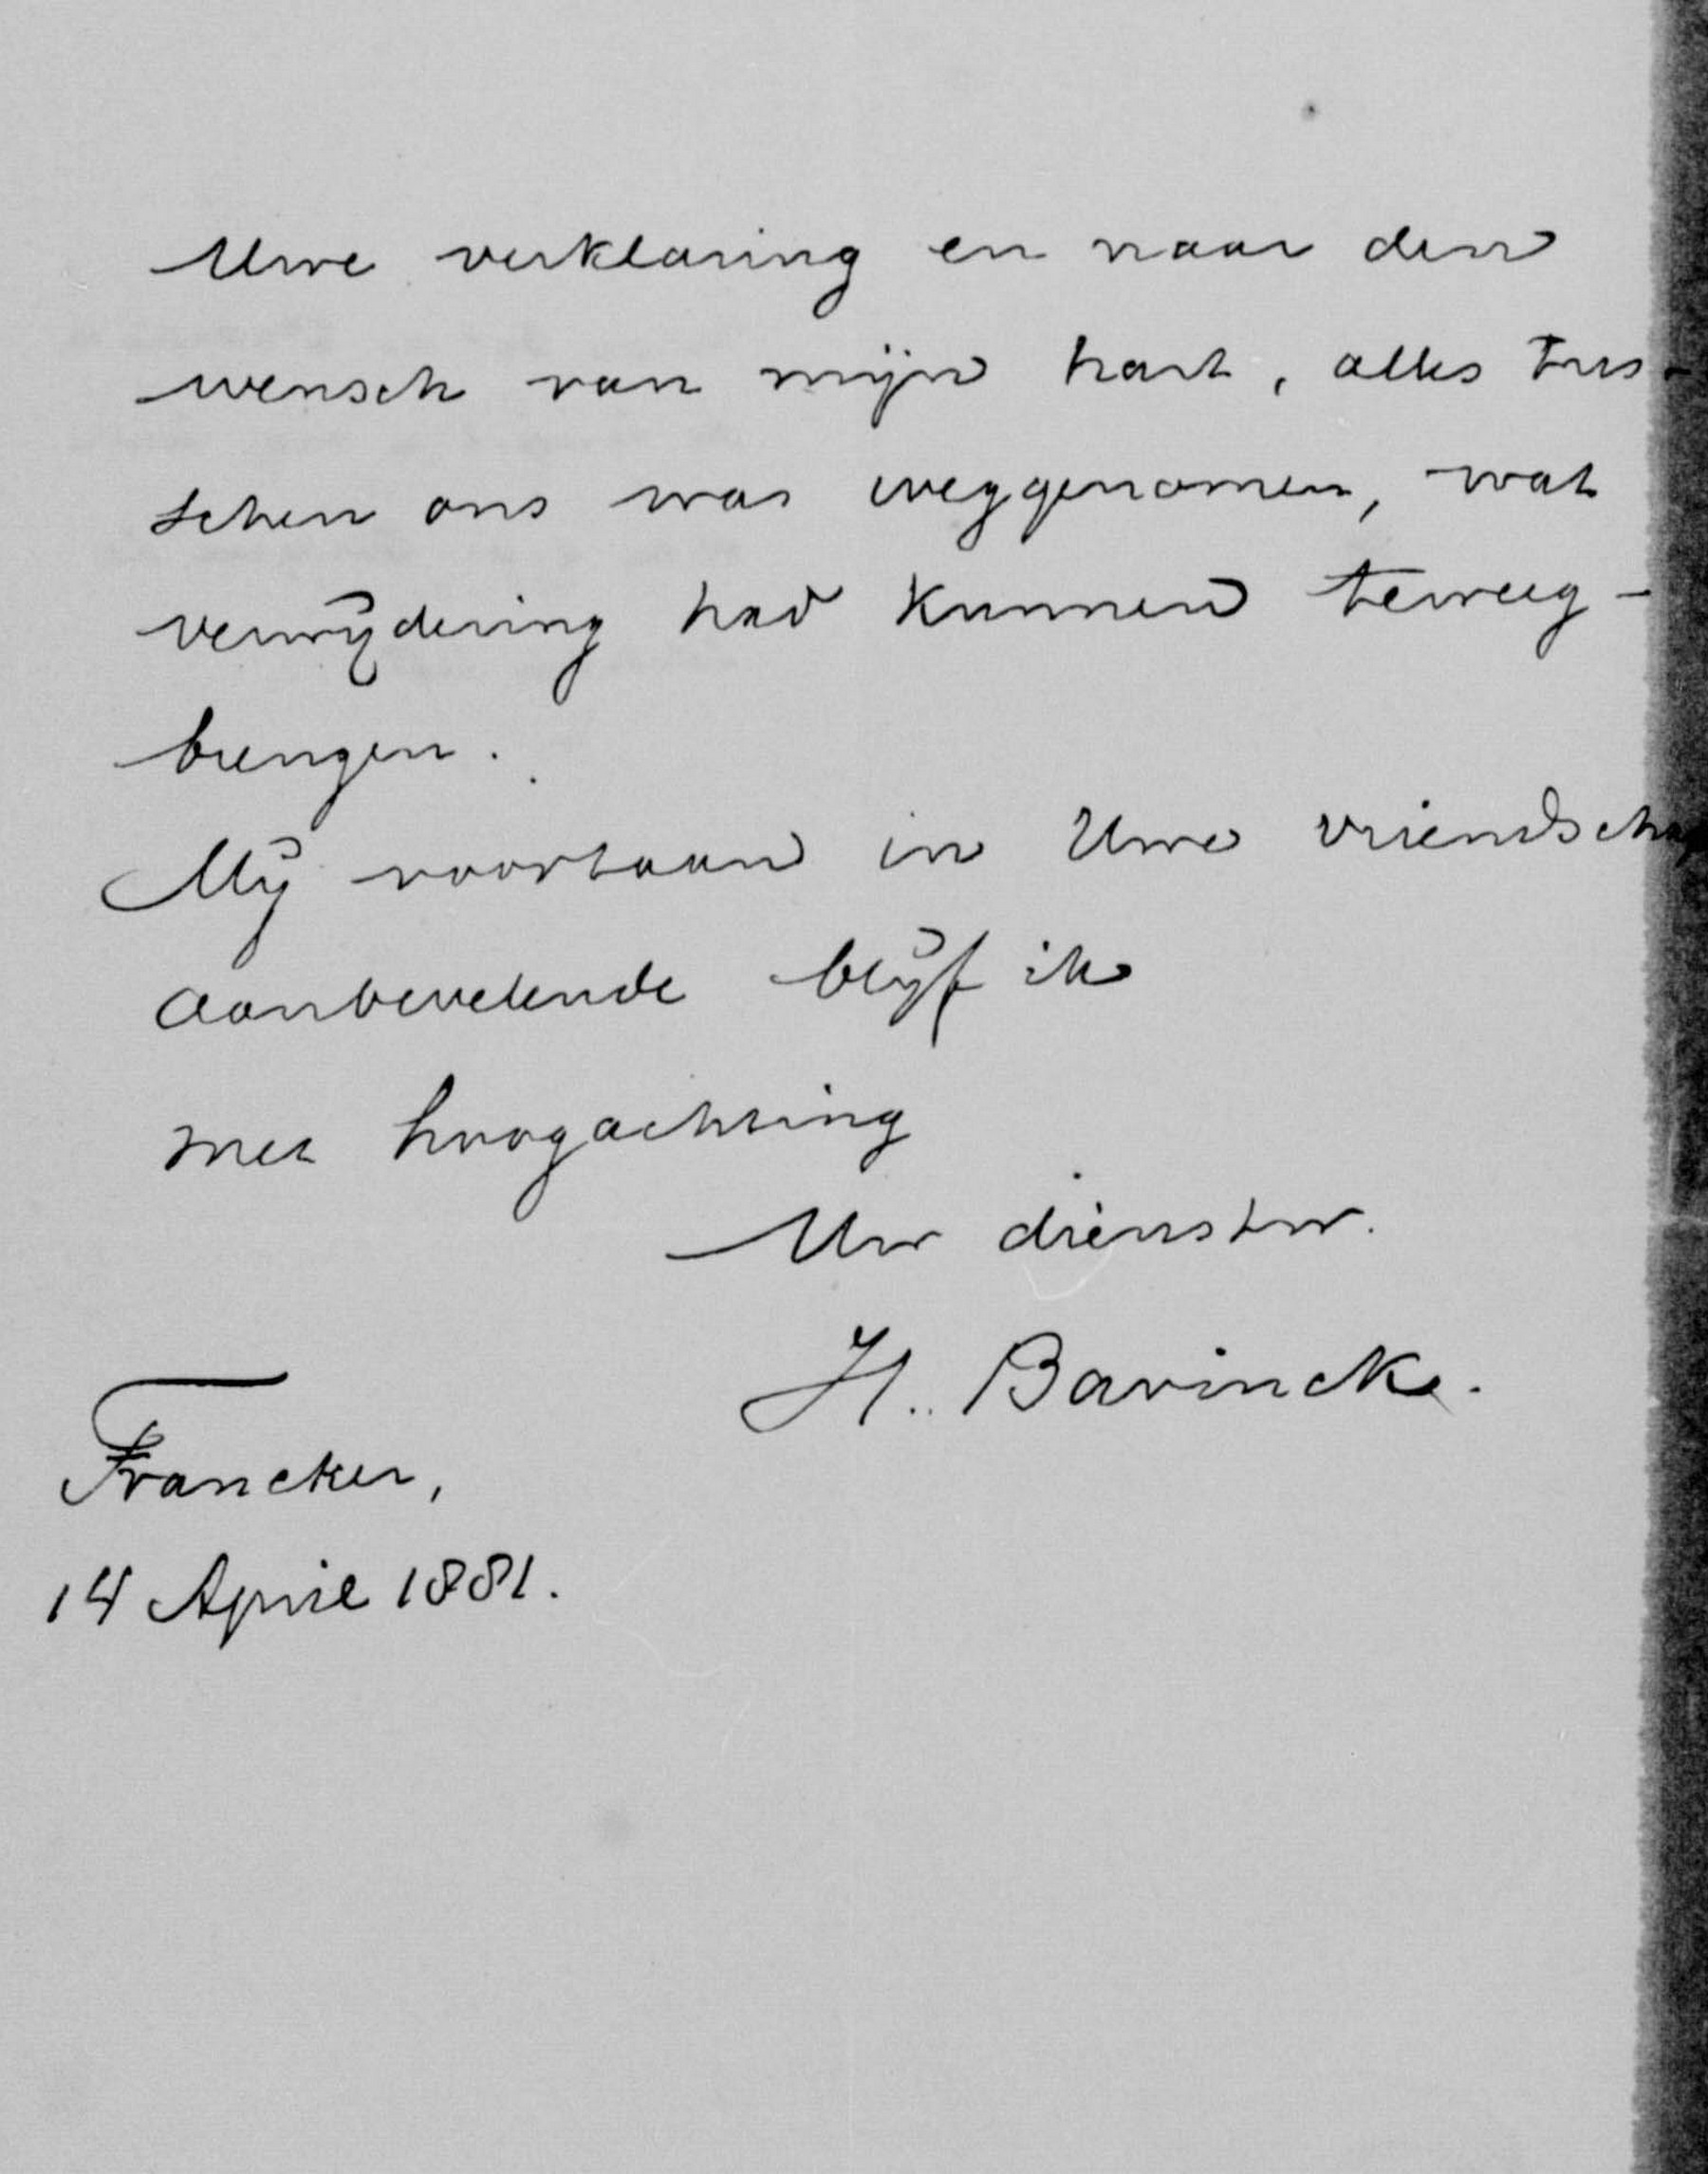 Uwe verklaring en naar den
wensch van mijn hart, alles tus-
schen ons was weggenomen, wat
verwijdering had kunnen teweeg-
brengen.
Mij voortaan in Uwe vriendschap
aanbevelende blijf ik
met hoogachting
Uw dienstw.
H. Bavinck.
Franeker,
14 April 1881.